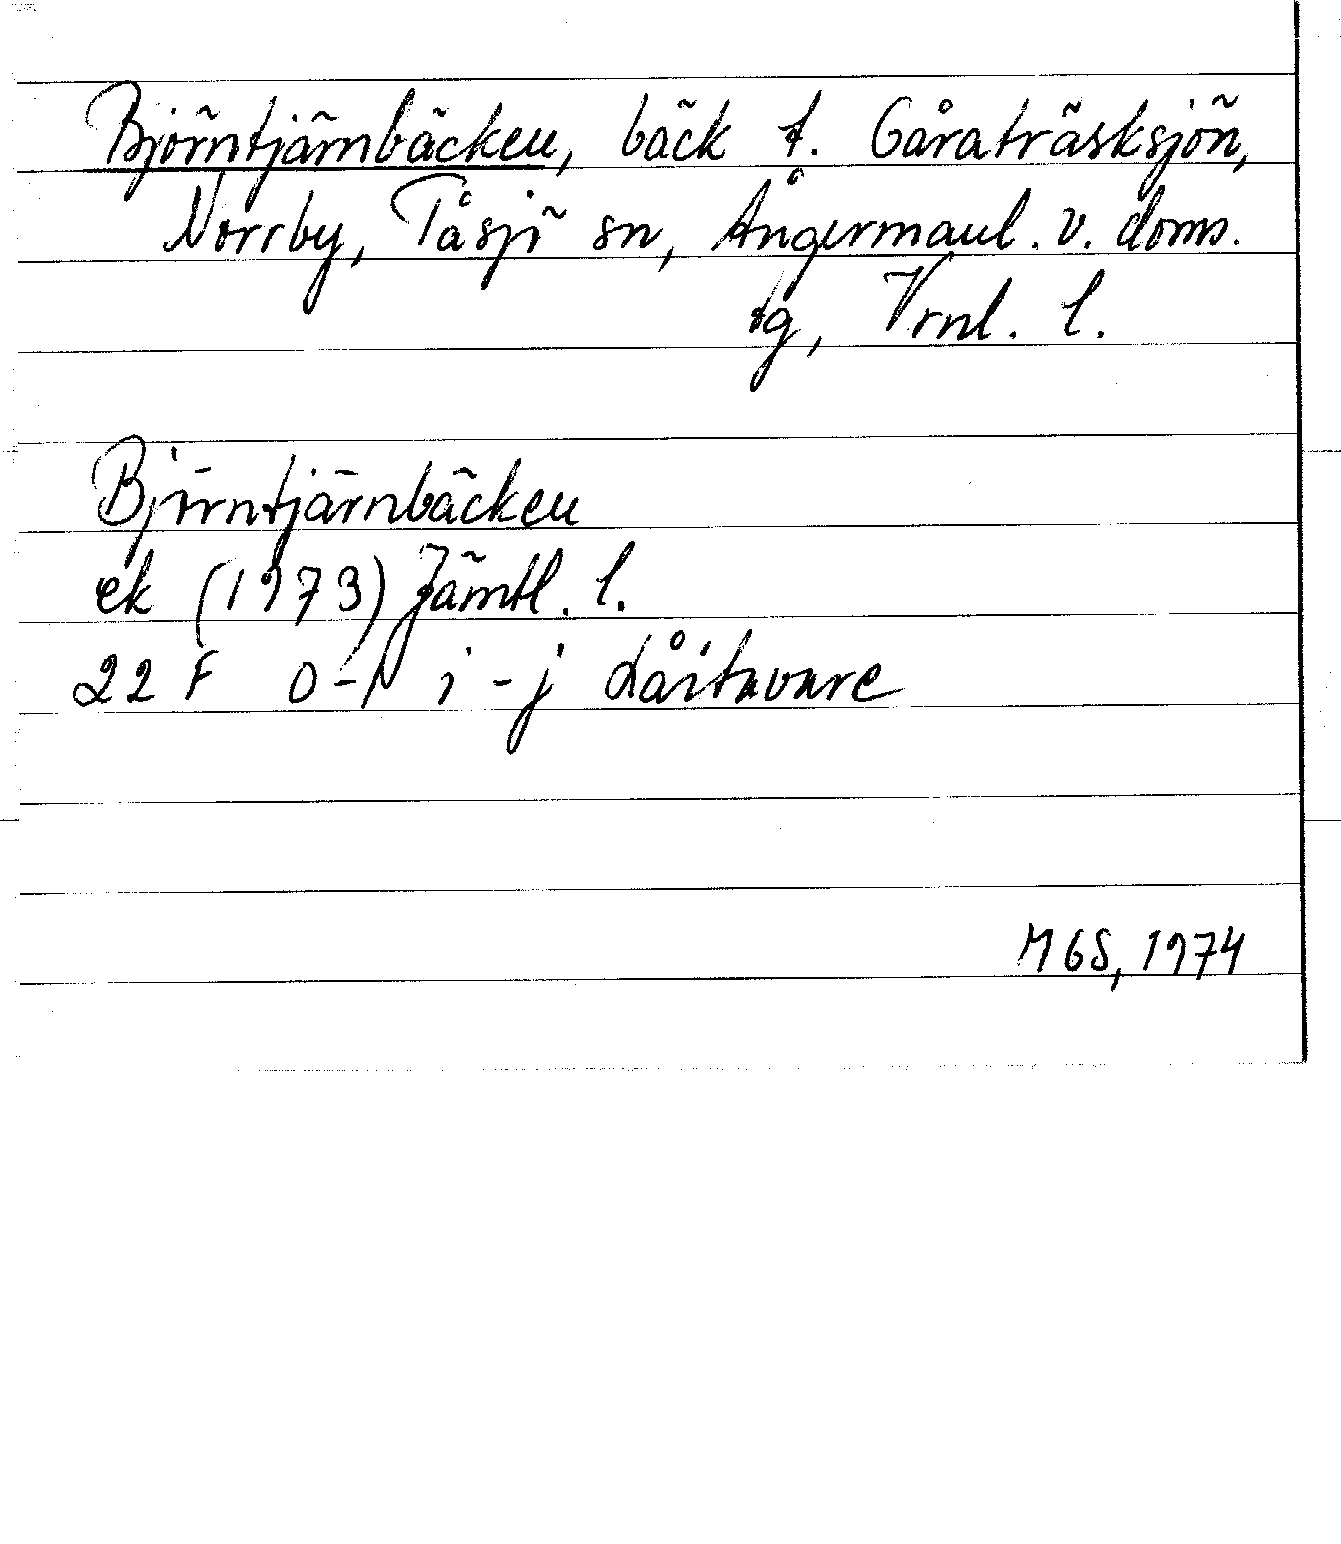 Björntjärnbäcken, bäck t. Gåraträsksjön,
Norrby, Tåsjö sn, Ångermanl. v. doms.
sg, Vrnl. l.
Björntjärnbäcken
ek (1973) Jämtl. l.
22 F 0-1 i-j Dåitavare
MGS, 1974